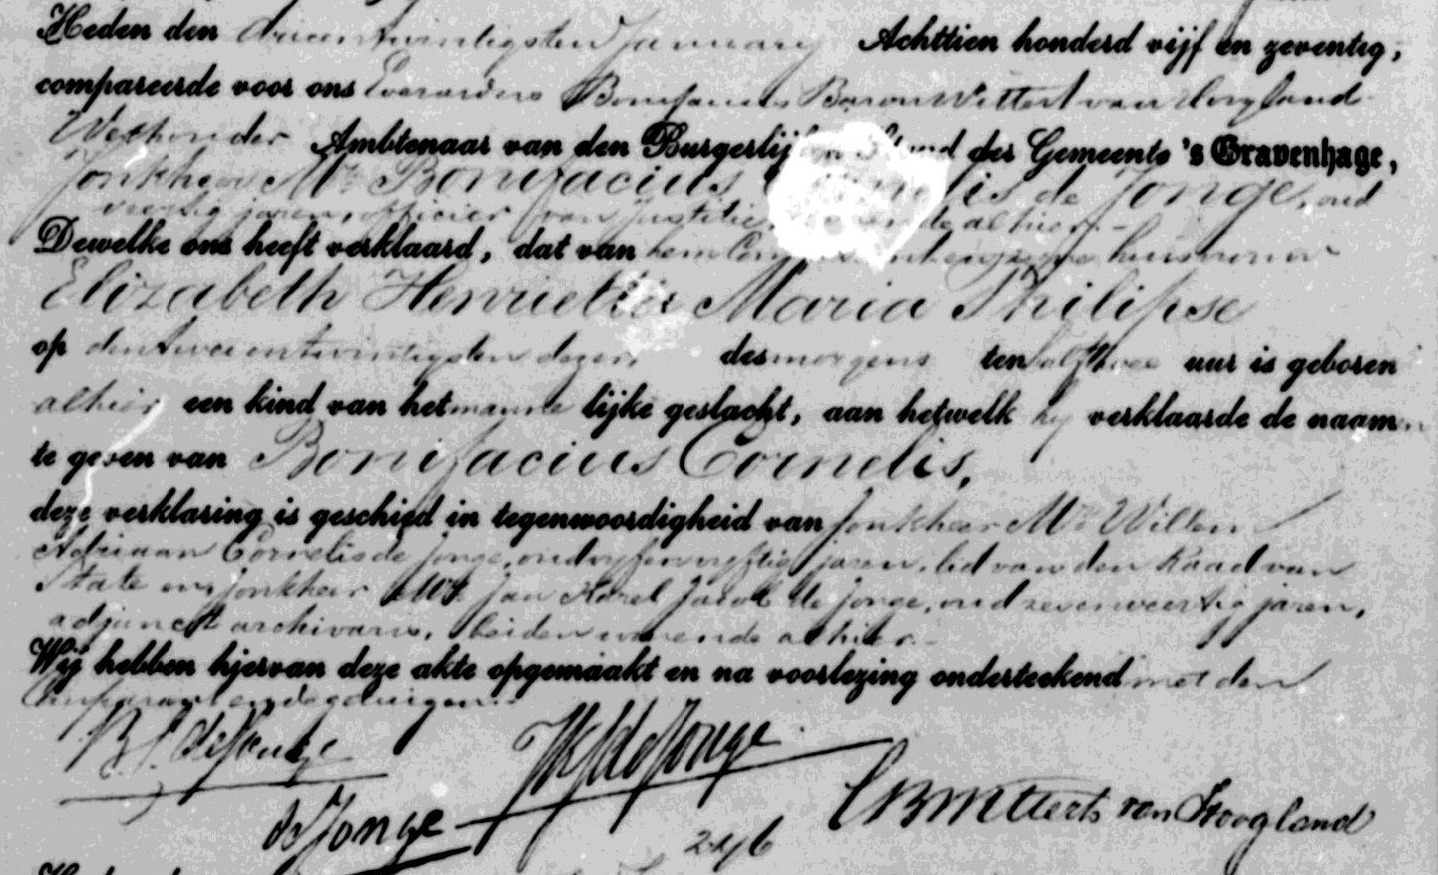 Heden den drieentwintigsten January Achttien honderd vijf en zeventig,
compareerde voor ons Everardus Bonifacius Baron Wittert van Hoogland
Wethouder Ambtenaar van den Burgerlijken Stand der Gemeente 's Gravenhage,
Jonkheer Mr. Bonifacius Cornelis de Jonge, oud
veertig jaren, officier van Justitie, wonende alhier.
Dewelke ons heeft verklaard, dat van hem Comparant en huisvrouw
Elizabeth Henrietta Maria Philipse
op den tweeentwintigsten dezer des morgens ten half twee uur is geboren
alhier een kind van het manne lijke geslacht, aan hetwelk hij verklaarde de naamen
te geven van Bonifacius Cornelis,
deze verklaring is geschied in tegenwoordigheid van Jonkheer Mr. Willem
Adriaan Cornelis de Jonge, oud vyfenvyftig jaren, lid van den Raad van
State en Jonkheer Mr. Jan Karel Jacob de Jonge, oud zevenveertig jaren,
adjunct archivaris, beiden wonende alhier.
Wij hebben hiervan deze akte opgemaakt en na voorlezing onderteekend met den
Comparant en de getuigen.
B.C. de Jonge JKJ de Jonge
de Jonge EBWitterts van Hoogland
246